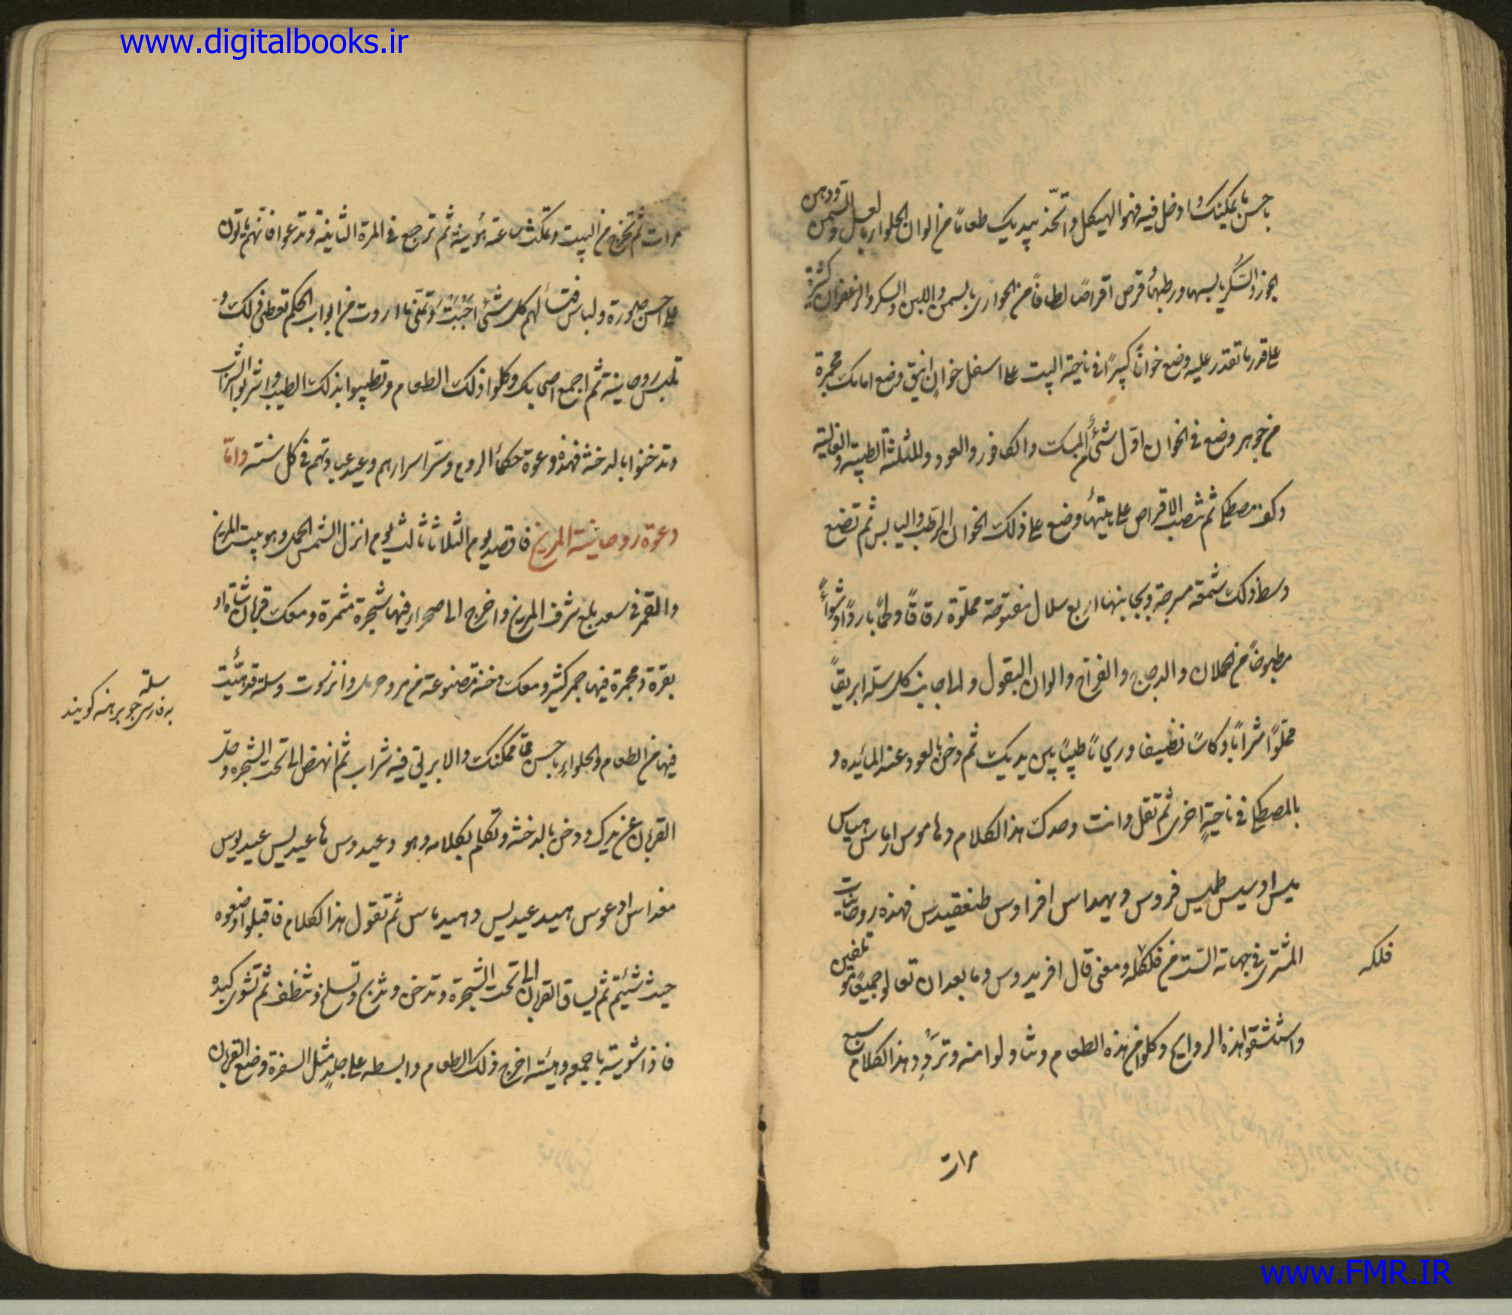 www.digitalbooks.ir
باحسن ما يمكنك وادخل فيه فهو الهيكل واتخذ بيديك طعاما من الوان الحلواء بالعسل والسمن ودهن
الجوز والسكر يابسها ورطبها ثم قرص اقراصا لطافا من الحواری بالسمن واللبن والسكر والزعفران كثيرة
علی قدر ما تقدر عليه وضع خوانا كبيرا فی ناحية البيت علی اسفل خوان انيق وضع امامك مجمرة
من جوهر وضع فی الخوان اول شئ المسك والكافور والعود والمثلثة الطيبة والغالية
مصطكی ثم تنصب الاقراص علی هيئتها وضع علی ذلك الخوان الرطب واليابس ثم تضع
وسط ذلك شمعة مسرجة وبجانبها اربع سلال مفتوحة مملوة رقاقا ولحما باردا وشواء
مطبوخا من الحملان والدجاج والفراخ والوان البقول والی جانب كل سلة ابريقا
مملوا شرابا وكاسا نظيفا وريحانا طيبا بين يديك ثم دخن بالعود عند المائدة و
بالمصطكی فی ناحية اخری ثم تقل وانت وحدك هذا الكلام دهاموس ارماس هياس
فروس افراوس فهذه روحانيات
المشتری فی جهاته الست من فلكله ومعنی قال افريدوس وما بعد ان تعالوا جميعا
واستنشقوا لهذه الروايح وكلوا من هذه الطعام وتناولوا منه وتردد هذا الكلام سبع
فلكه
مرات
مرات ثم تخرج من البيت وتمكث ساعة هوينة ثم ترجع فی المرة الثانية وتدعوا فانهم ياتون
علی احسن صورة ولباس فتسألهم كل شئ احببت وتلقی ما اردت من ابواب الحكم تعطی ذلك و
تلبس روحانية ثم اجمع اصحابك وكلوا ذلك الطعام وتطيبوا بذلك الطيب واشربوا الشراب
وتدخنوا بالدخنة فهذه دعوة حكماء الروم وستر اسرارهم وعيد عباداتهم فی كل سنة واما
دعوة روحانية المريخ فاقصد يوم الثلاثا ثالث يوم انزل الشمس الحمل وهو بيت المريخ
والقمر فی سعد بلغ شرف المريخ واخرج الی صحراء فيها شجرة مثمرة ومعك قربان شاة او
بقرة ومجمرة فيها جمر كثير ومعك دخنة مصنوعة من مر وحرمل وانزروت وسلة قد هيئت
فيها من الطعام والحلواء باحسن ما يمكنك والابريق فيه شراب ثم انهض الی تحت الشجرة وحل
القربان عن يدك ودخن بالدخنة وتكلم بكلامه وهو دعيدوس هاعيديس عيديوس
مغداس ادعوس هيد عيديس وهيدماس ثم تقول هذا الكلام فاقبلوا وضعوه
حيث شئتم ثم يساق القربان الی تحت الشجرة وتدخن وتذبح وتسلخ وتنظف ثم تشوی كبده
فاذا شويته باجمعه وهيئته اخرج ذلك الطعام وابسطه علی جلد مثل السفرة وضع القربان
سله
به فارسی جو برهنه كويند
www.FMR.IR